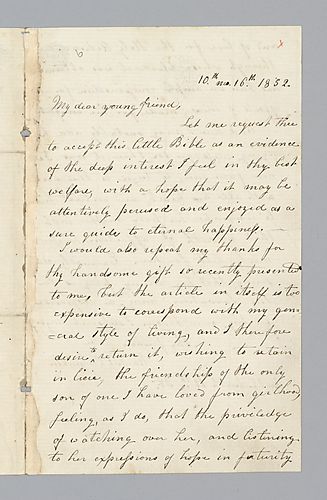 10.th mo. 16.th 1852.
My dear young friend,
Let me request thee
to accept this little Bible as an evidence
of the deep interest I feel in thy best
welfare, with a hope that it may be
attentively perused and enjoyed as a
sure guide to eternal happiness. —
I would also repeat my thanks for
thy handsome gift so recently presented
to me, but the article in itself is too
expensive to correspond with my gen-
=eral style of living, and I therefore
desire to return it, wishing to retain
in lieu, the friendship of the only
son of one I have loved from girlhood,
feeling, as I do, that the priviledge
of watching over her, and listening
to her expressions of hope in futurity